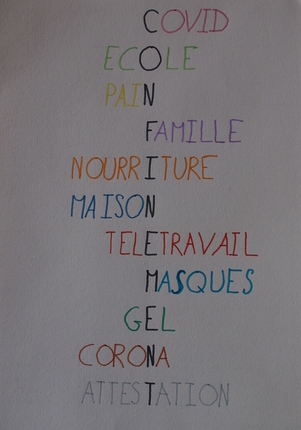 COVID
ECOLE
PAIN
FAMILLE
NOURRITURE
MAISON
TELETRAVAIL
MASQUES
GEL
CORONA
ATTESTATION